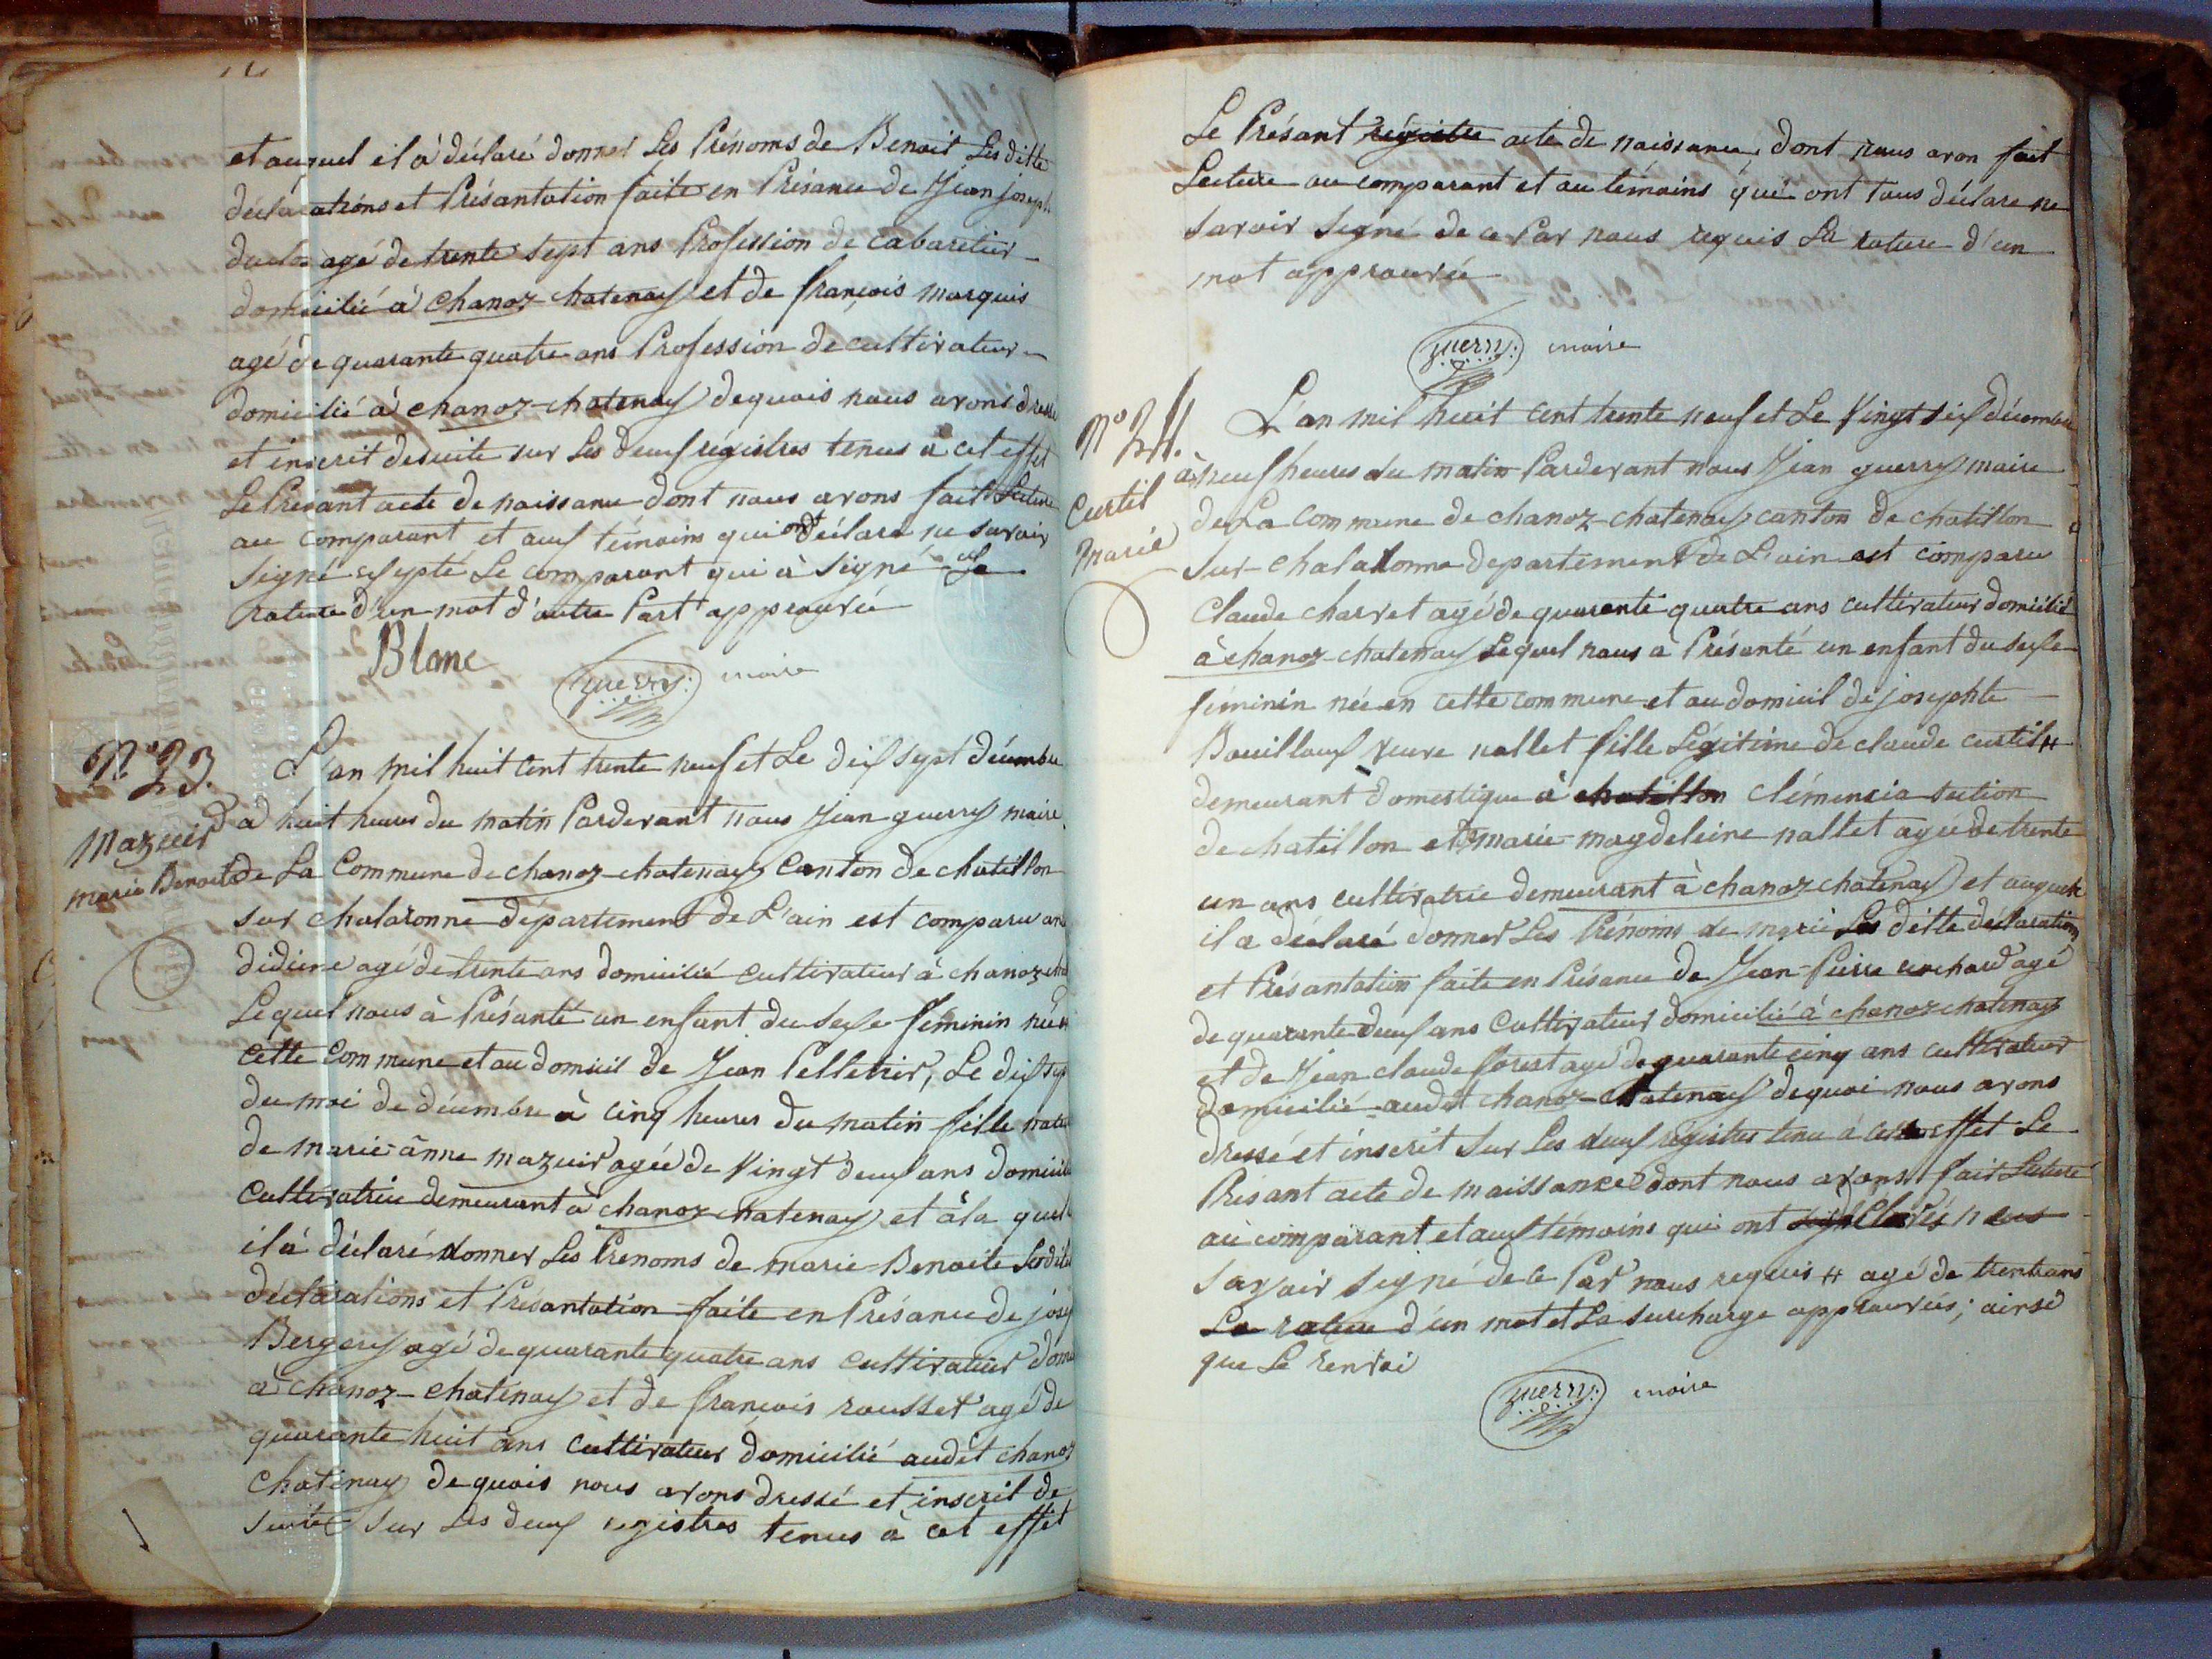 et auquel il à déclaré donner Les Prénoms de Benoit Les ditte
déclarations et Présantation faite en Présance de Jean joseph
duclos agé de trente sept ans Profession de cabaretier
domicilié à chanoz-chatenay et de françois marquis
agé de quarante quatre ans Profession de cultivateur
domicilié à chanoz-chatenay dequois nous avons dressé
et inscrit desuite sur Les deux régistres tenus à cet effet
Le Présant acte de naissance dont nous avons fait Lecture
au comparant et aux témoins qui ont déclaré ne savoir
signé exepté Le comparant qui à signé La
rature d'un mot d'autre Part approuvée
Blanc
guerry maire
N° 23.
Mazuir
marie Benoite
L'an mil huit cent trente neuf et Le dix sept décembre
à huit heures du matin Pardevant nous Jean guerry maire
de La Commune de chanoz-chatenay Canton de chatillon
sur chalaronne département de L'ain est comparu
didière agé de trente ans domicilié cultivateur à chanoz
Lequel nous à Présanté un enfant du sexe féminin né
cette Commune et au domicil de Jean Pelletier, Le dix sept
du moi de décembre à cinq heures du matin fille
de marie-ânne mazuir agée de Vingt deux ans
Cultivatrice demeurant à chanoz-chatenay et à la
il à déclaré donner Les Prenoms de marie-Benoite
déclarations et Présantation faite en Présance de
Bergery agé de quarante quatre ans cultivateur
à chanoz-chatenay et de françois rousset agé de
quarante huit ans cultivateur domicilié audit chanoz
chatenay de quois nous avons dressé et inscrit de
suite sur Les deux registres tenus à cet effet
Le Présant régistre acte de naissance, dont nous avon fait
Lecture au comparant et au témoins qui ont tous déclare ne
savoir signé de ce Par nous requis La rature d'un
mot approuvée
guerry maire
N° 24.
Curtil
marie
L'an mil huit cent trente neuf et Le Vingt six décembre
à neuf heures du matin Pardevant nous Jean guerry maire
de La commune de chanoz-chatenay canton de chatillon
sur-chalaronne departement de L'ain est comparu
Claude charvet agé de quarante quatre ans cultivateur domicilié
à chanoz-chatenay Lequel nous a Présanté un enfant du sexe
féminin née en cette commune et au domicil de josephte
Bouilloux veuve nallet fille Légitime de claude curtil #
demeurant domestique à chatillon clémencia section
de chatillon et marie-magdeleine nallet agée de trente
un ans cultivatrice demeurant à chanoz chatenay et
il a déclaré donner Les Prénoms de marie Les ditte déclarations
et Présantation faite en Présance de Jean-Pierre agé
de quarante deux ans Cultivateur domicilié à chanoz chatenay
et de Jean claude forest agé de quarante cinq ans cultivateur
domicilié audit chanoz-chatenay dequoi nous avons
dressé et inscrit sur Les deux régistres tenu à effet Le
Présant acte de naissance dont nous avons fait Lecture
au comparant et aux témoins qui ont
savoir signé de ce Par nous requis # agé de trentrans
La rature d'un mot et La surcharge approuvées; ainsi
que Le renvoi
guerry maire